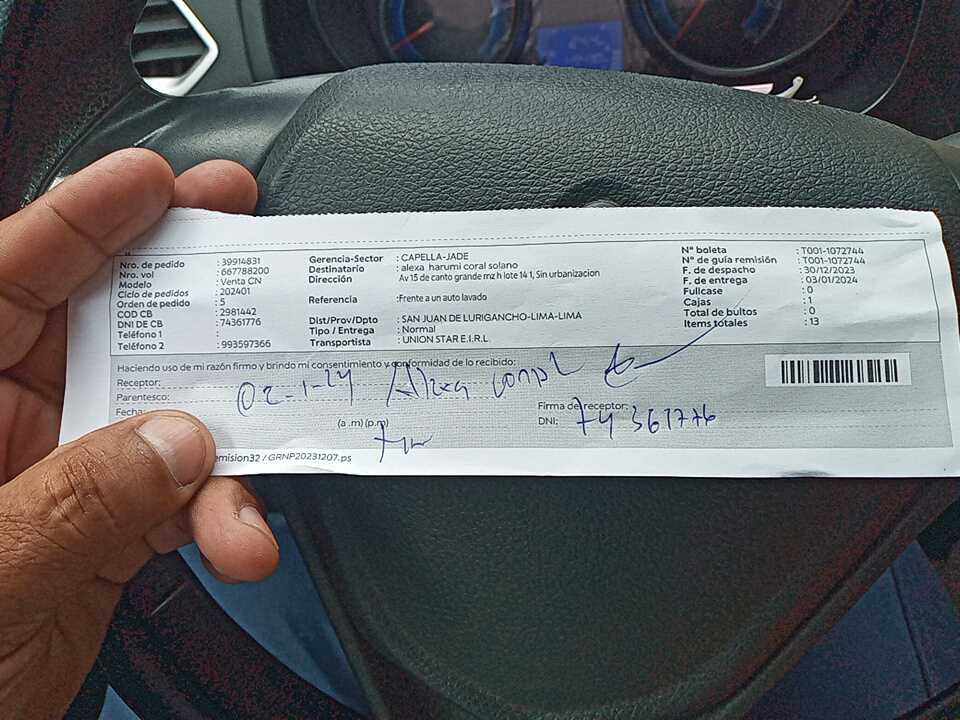 Nro. de pedido : 39914831
Nro. vol : 667788200
Modelo : Venta CN
Ciclo de pedidos : 202401
Orden de pedido : 5
COD CB : 2981442
DNI DE CB : 74361776
Teléfono 1 :
Teléfono 2 : 993597366
Gerencia-Sector : CAPELLA-JADE
Destinatario : alexa harumi coral solano
Dirección : Av 15 de canto grande mz h lote 14 1, Sin urbanizacion
Referencia : Frente a un auto lavado
Dist/Prov/Dpto : SAN JUAN DE LURIGANCHO-LIMA-LIMA
Tipo / Entrega : Normal
Transportista : UNION STAR E.I.R.L.
Nº boleta : T001-1072744
Nº de guía remisión : T001-1072744
F. de despacho : 30/12/2023
F. de entrega : 03/01/2024
Fullcase : 0
Cajas : 1
Total de bultos : 0
Items totales : 13
Haciendo uso de mi razón firmo y brindo mi consentimiento y conformidad de lo recibido:
Receptor:
Parentesco:
02-1-24 Alexa
Fecha:
(a .m) (p.m)
Firma de receptor:
DNI: 74361776
emision32 / GRNP20231207.ps